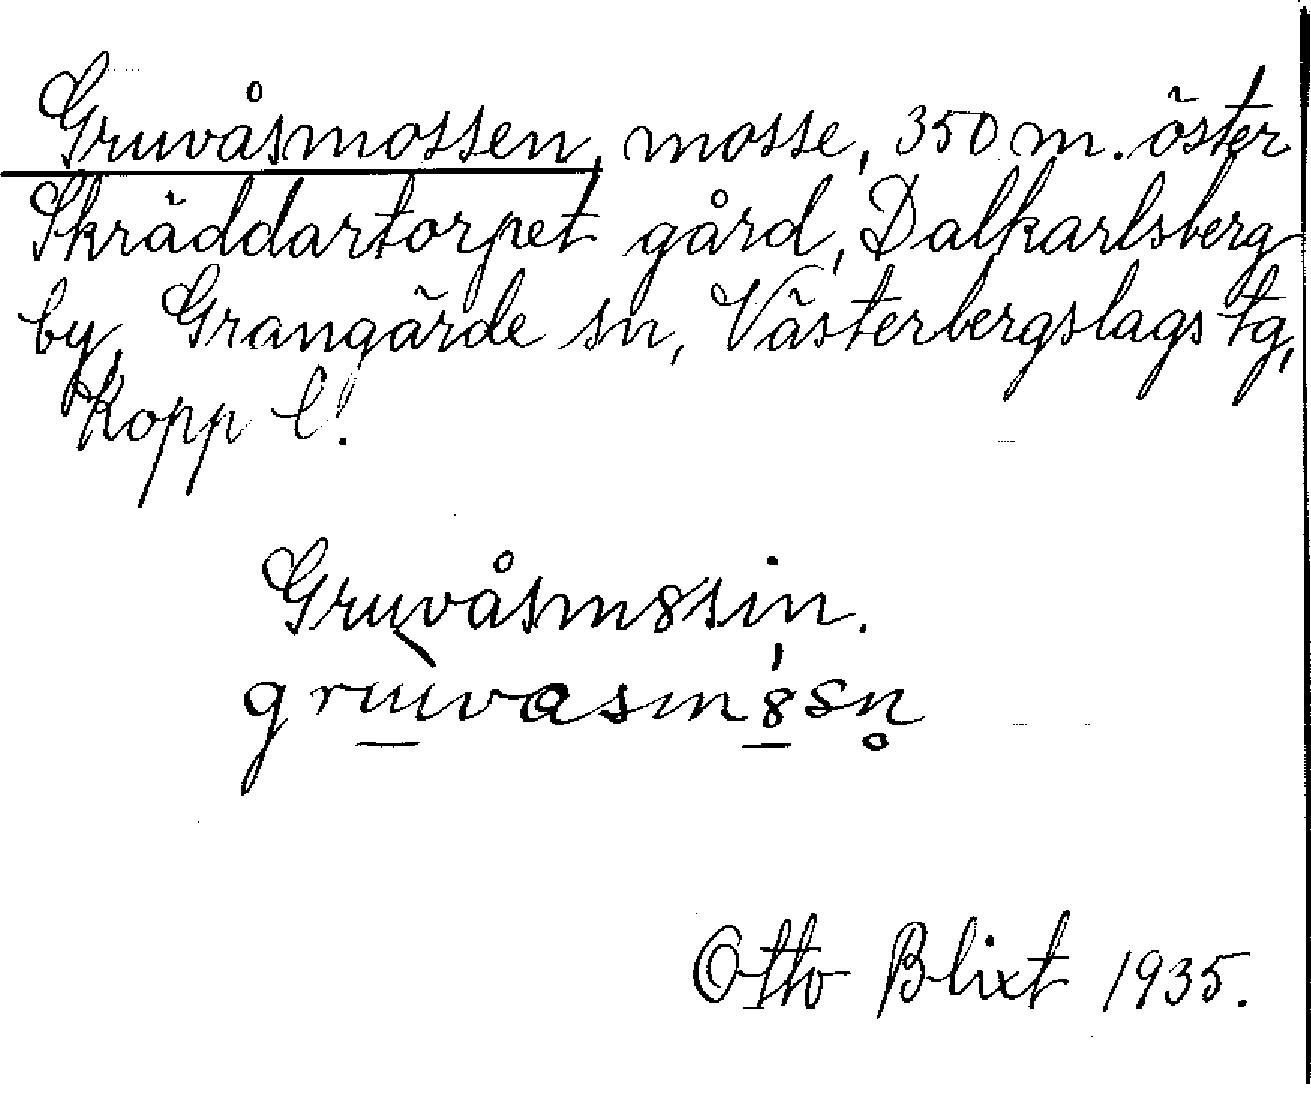 Gruvåsmossen, mosse, 350 m. öster
Skräddartorpet gård, Dalkarlsberg
by, Grangärde sn, Västerbergslags tg,
Kopp l.
Gruvåsm8sin.
gruvasm8sn̥
Otto Blixt 1935.